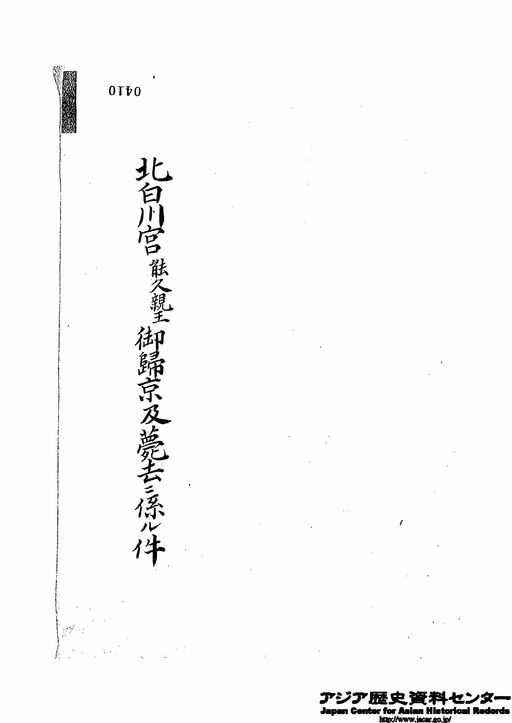 0410
北白川宮能久親王御歸京及薨去ニ係ル件
アジア歴史資料センター
Japan Center for Asian Historical Records
http://www.jacar.go.jp/